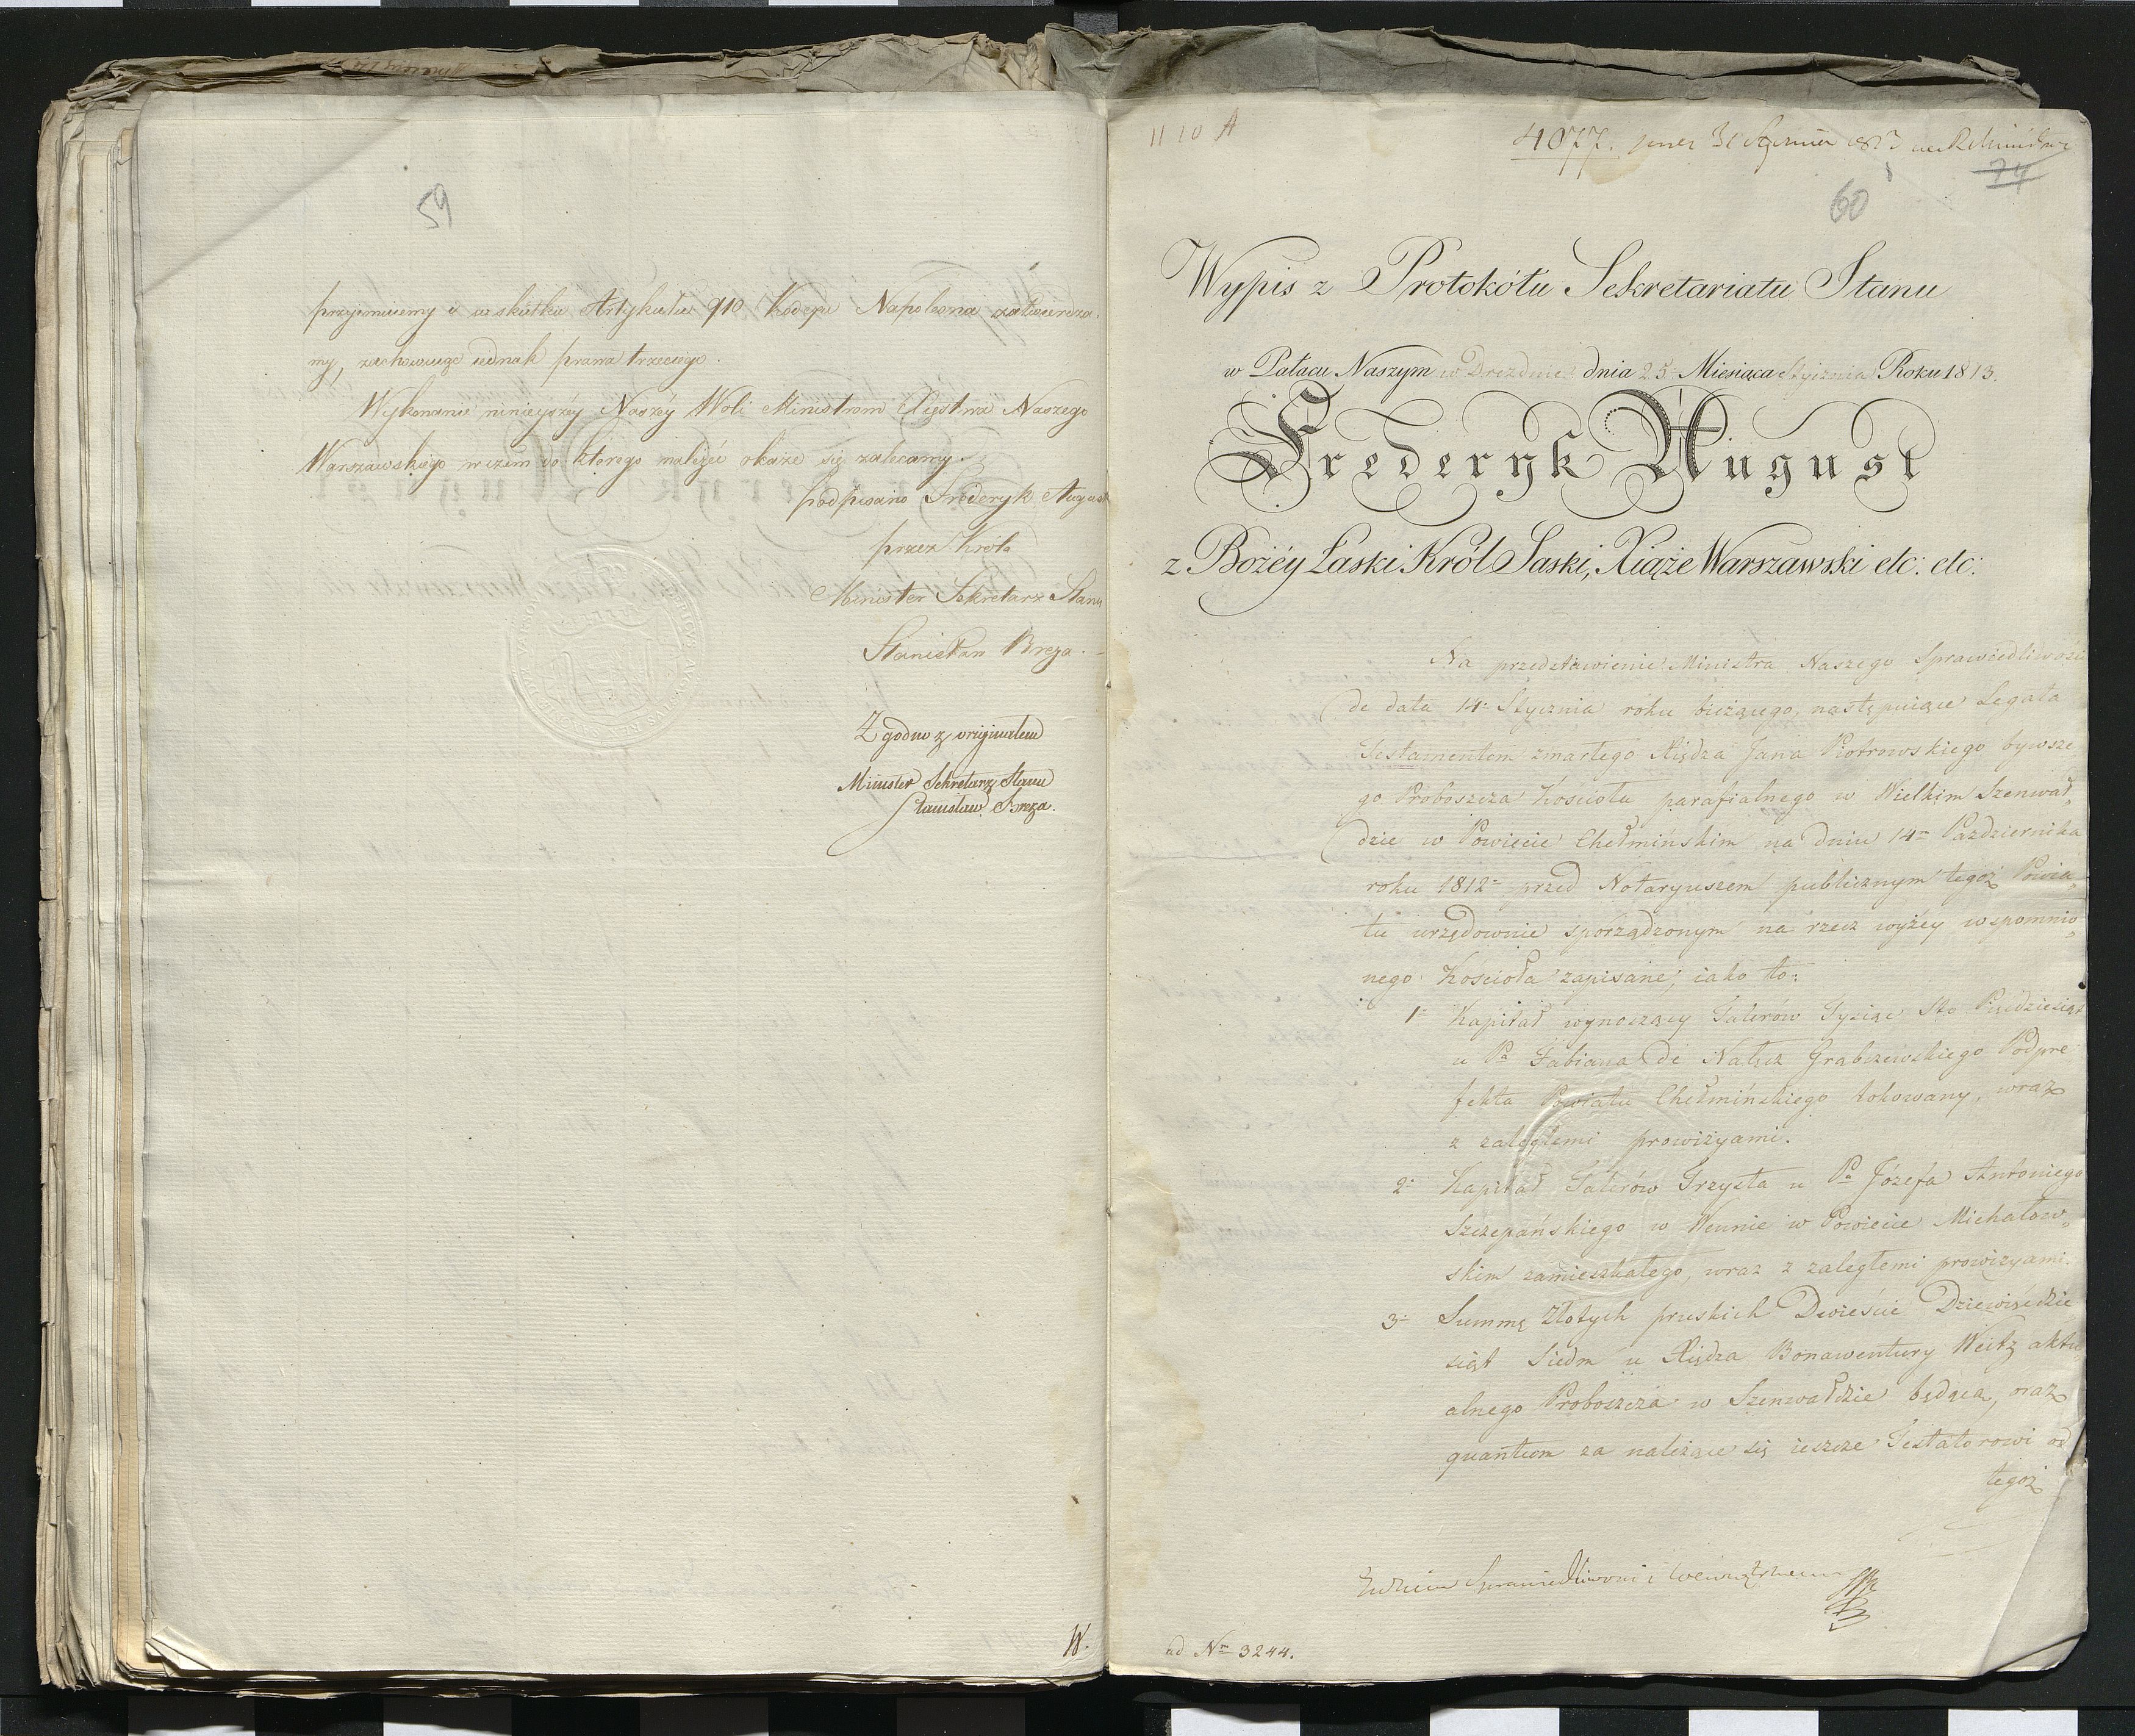 59
przyjmuiemy i w skutku Artykułu 910 Kodexu Napoleona zatwierdza-
my, zachowuiąc iednak prawa trzeciego.
Wykonanie ninieyszéy Naszéy Woli Ministrom Xięstwa Naszego
Warszawskiego w czém do którego należéć okaże się zalecamy.
podpisano Fréderyk August
przez Króla
Minister Sekretarz Stanu
Stanisław Breza.
Zgodno z oryginałem
Minister Sekretarz Stanu
Stanisław Breza.
W.
11 10 A
4077.
74
60
Wypis z Protokółu Sekretariatu Stanu
w Pałacu Naszym w Dreznie dnia 25. Miesiąca Stycznia Roku 1813.
Frederyk August
z Bożéy Łaski Król Saski, Xiąże Warszawski etc: etc:
Na przedstawienie Ministra Naszego Sprawiedliwości
de data 14. Stycznia roku bieżącego, następuiące Legata
Testamentem zmarłego Xiędza Jana Piotrowskiego bywsze
go Proboszcza Kościoła parafialnego w Wielkim Szenwał„
dzie w Powiecie Chełmińskim na dniu 14m Października
roku 1812m przed Notaryuszem publicznym tegoż Powia„
tu urzędownie sporządzonym na rzecz wyżey wspomnio„
nego Kościoła zapisane, iako to:
1° Kapitał wynoszący Talerów Tysiąc Sto Pięćdziesiąt
u Pa Fabiana de Nałęcz Grąbczewskiego Podpre
fekta Powiatu Chełmińskiego lokowany, wraz
z zaległemi prowizyami.
2° Kapitał Talerów Trzysta u Pa Józefa Antoniego
Szczepańskiego w Wennie w Powiecie Michałow„
skim zamieszkałego, wraz z zaległemi prowizyami.
3° Summę Złotych pruskich Dwieście Dziewięćdzie
siąt Siedm u Xiędza Bonawentury Weitz aktu
alnego Proboszcza w Szenwałdzie będącą, oraz
quantum za należące się ieszcze Testatorowi od
tegoż
Sprawiedliwości i
ad Nr 3244.